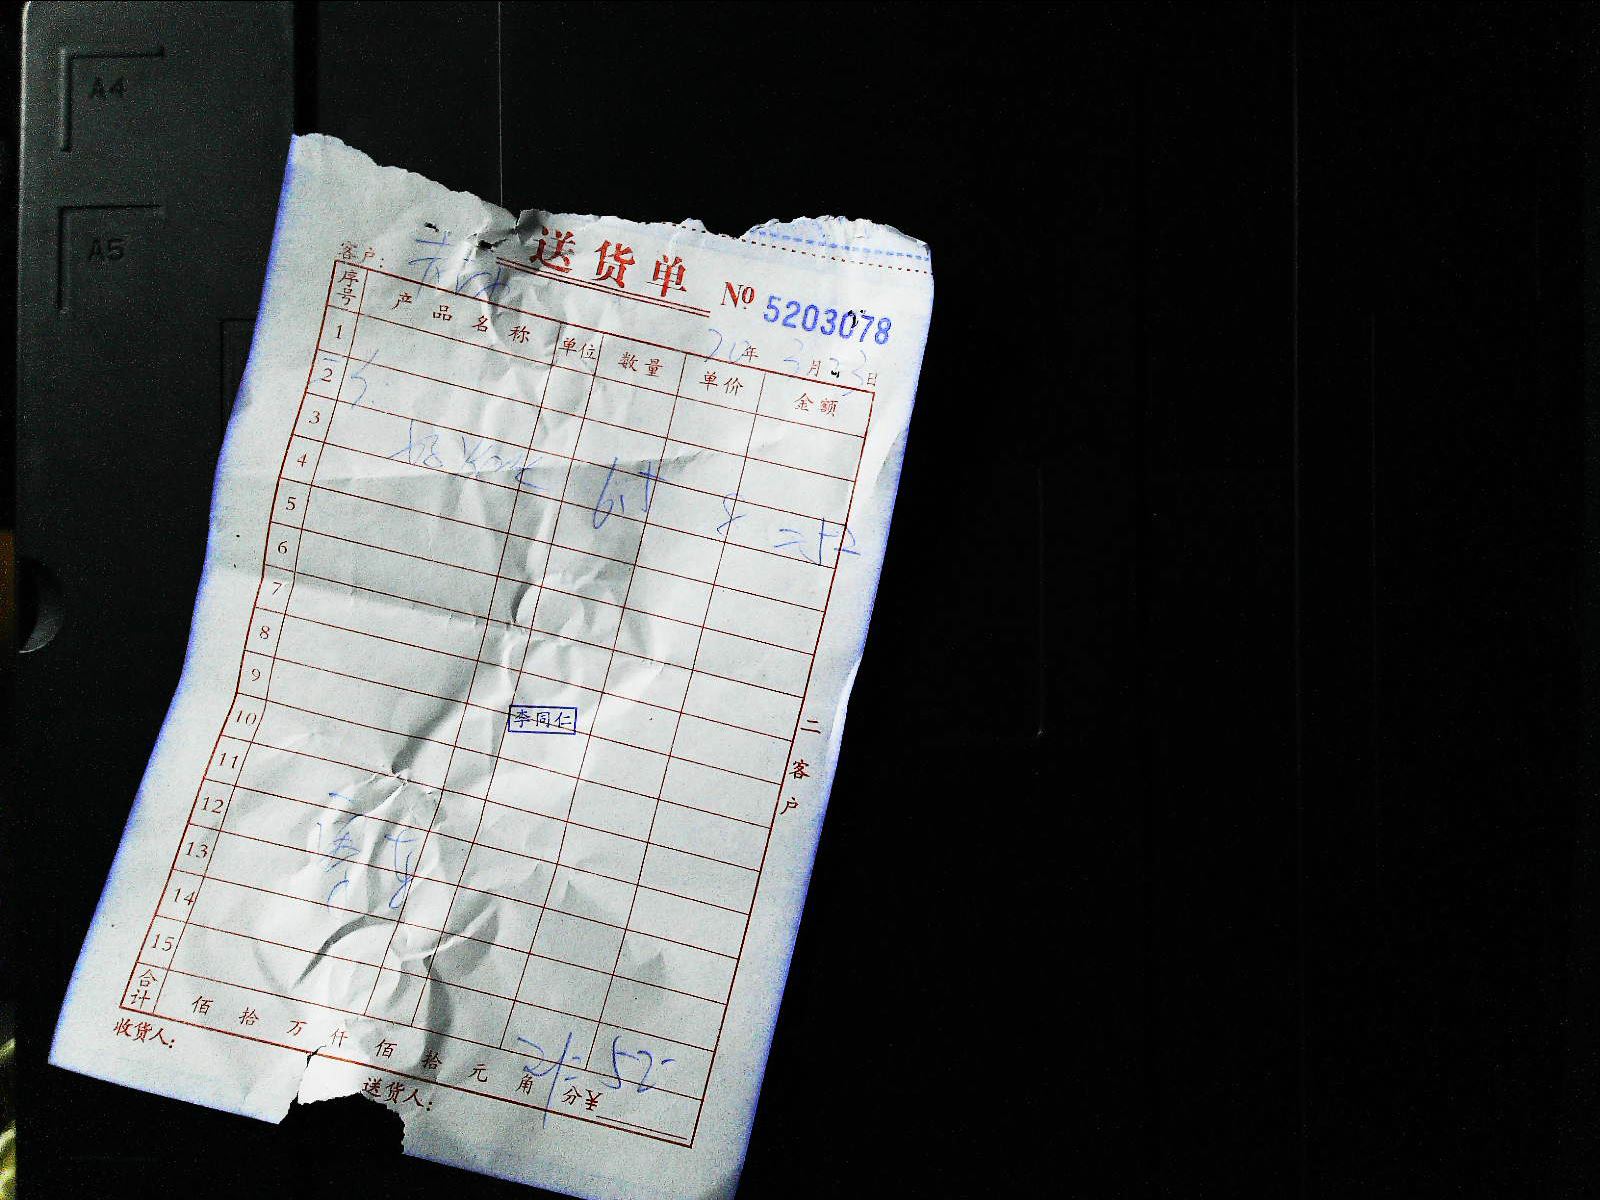 A4
A5
送货单
No 5203078
客户:
20年 3月23日
序号 产品名称 单位 数量 单价 金额
1
2
3
4 6.5 8 =52
5
6
7
8
9
10
李同仁
11
12
13
14
15
合计 佰 拾 万 仟 佰 拾 元 角 分 ¥ 52
收货人: 送货人:
二客户